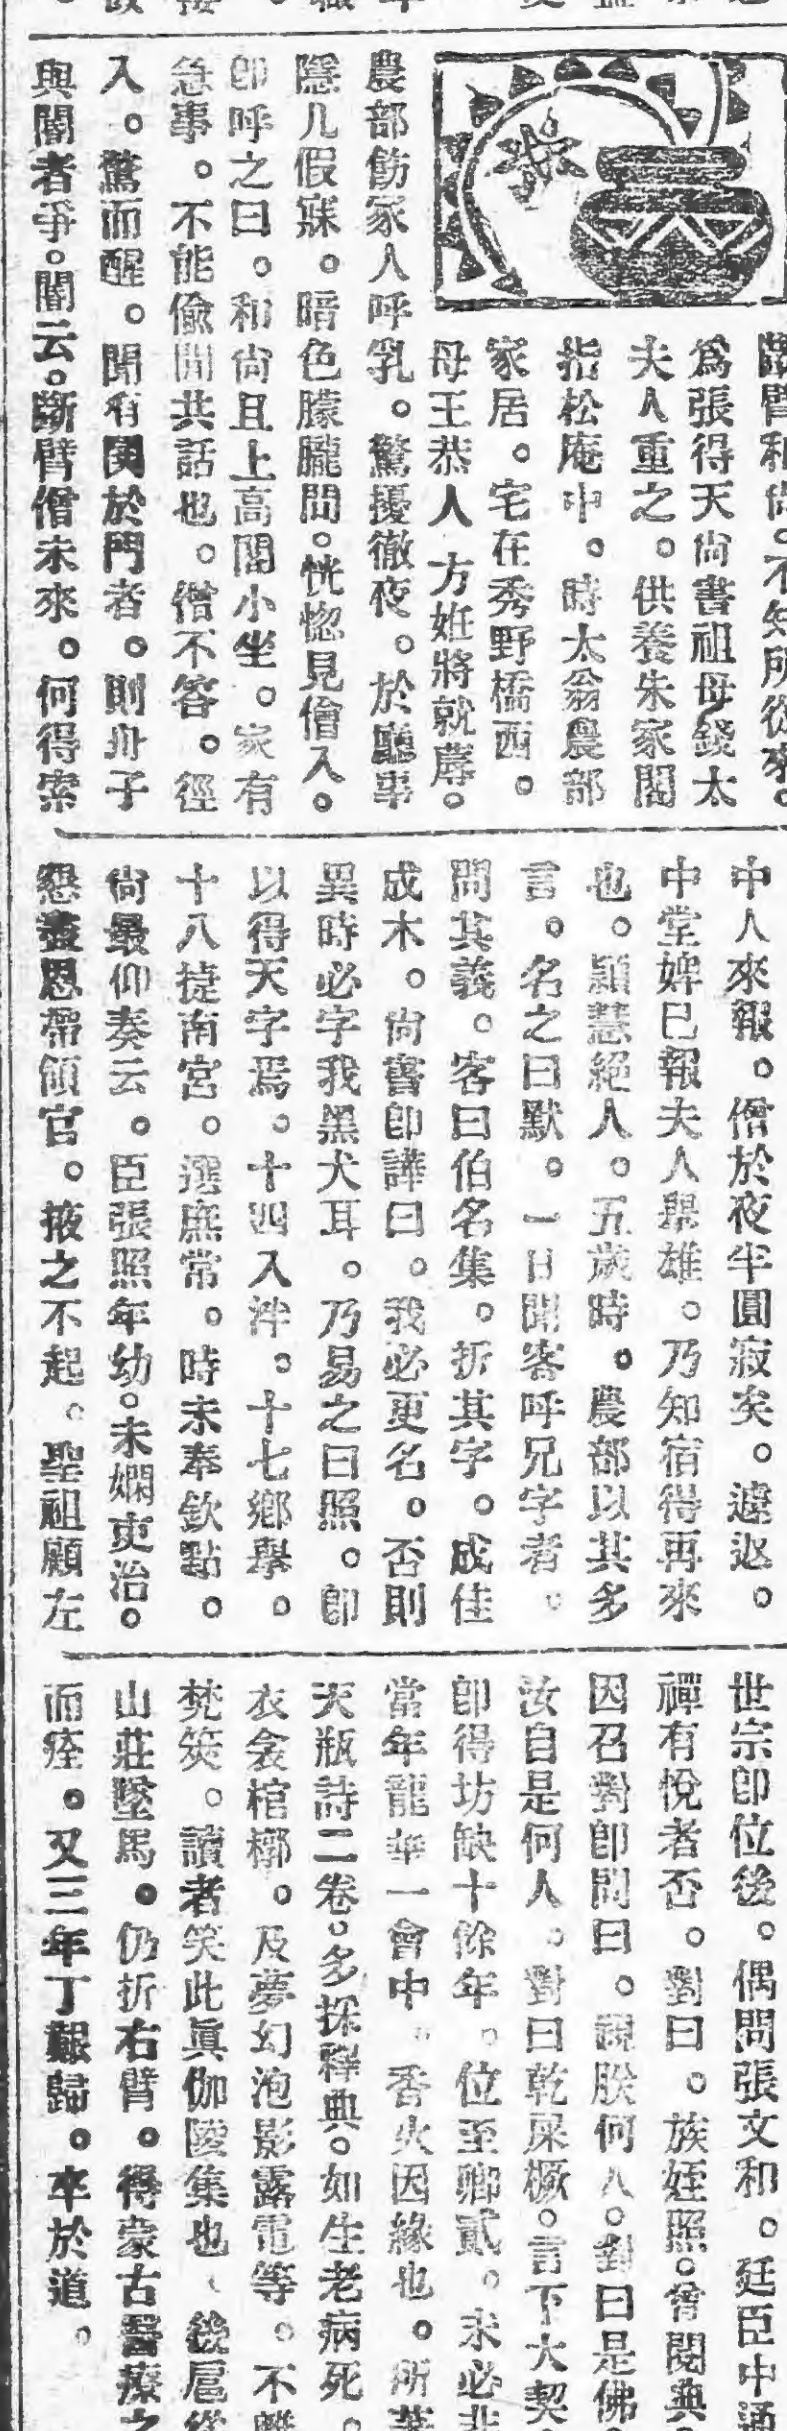 斷臂和尙。不知所從來。
爲張得天尙書祖母錢太
夫人重之。供養朱家閣
指松庵中。時太翁農部
家居。宅在秀野橋西。
母王恭人方姙將就蓐。
農部飭家人呼乳。驚擾徹夜。於廳事
隱几假寐。暗色朦朧間。恍惚見僧入。
卽呼之曰。和尙且上高閣小坐。家有
急事。不能偸閒共話也。僧不答。徑
入。驚而醒。聞有鬨於門者。則舟子
與閽者爭。閽云。斷臂僧未來。何得索
中人來報。僧於夜半圓寂矣。遽返。
中堂婢已報夫人舉雄。乃知宿得再來
也。穎慧絕人。五歲時。農部以其多
言。名之曰默。一日聞客呼兄字者。
問其義。客曰伯名集。折其字。成佳
成木。尙書卽譁曰。我必更名。否則
異時必字我黑犬耳。乃易之曰照。卽
以得天字焉。十四入泮。十七鄉舉。
十八捷南宮。選庶常。時未奉欽點。
尙最仰奏云。臣張照年幼。未嫻吏治。
懇盡恩帶領官。掖之不起。聖祖顧左
世宗卽位後。偶問張文和。廷臣中通
禪有悅者否。對曰。族姪照。曾閱典
因召對卽問曰。視朕何人。對曰是佛。
汝自是何人。對曰乾屎橛。言下大契。
卽得坊缺十餘年。位至卿貳。未必非
當年龍華一會中。香火因緣也。所著
天瓶詩二卷。多採釋典。如生老病死。
衣衾棺槨。及夢幻泡影露電等。不離
梵筴。讀者笑此眞伽陵集也、後扈從
山莊墜馬。仍折右臂。得蒙古醫療之
而痊。又三年丁艱歸。卒於道。